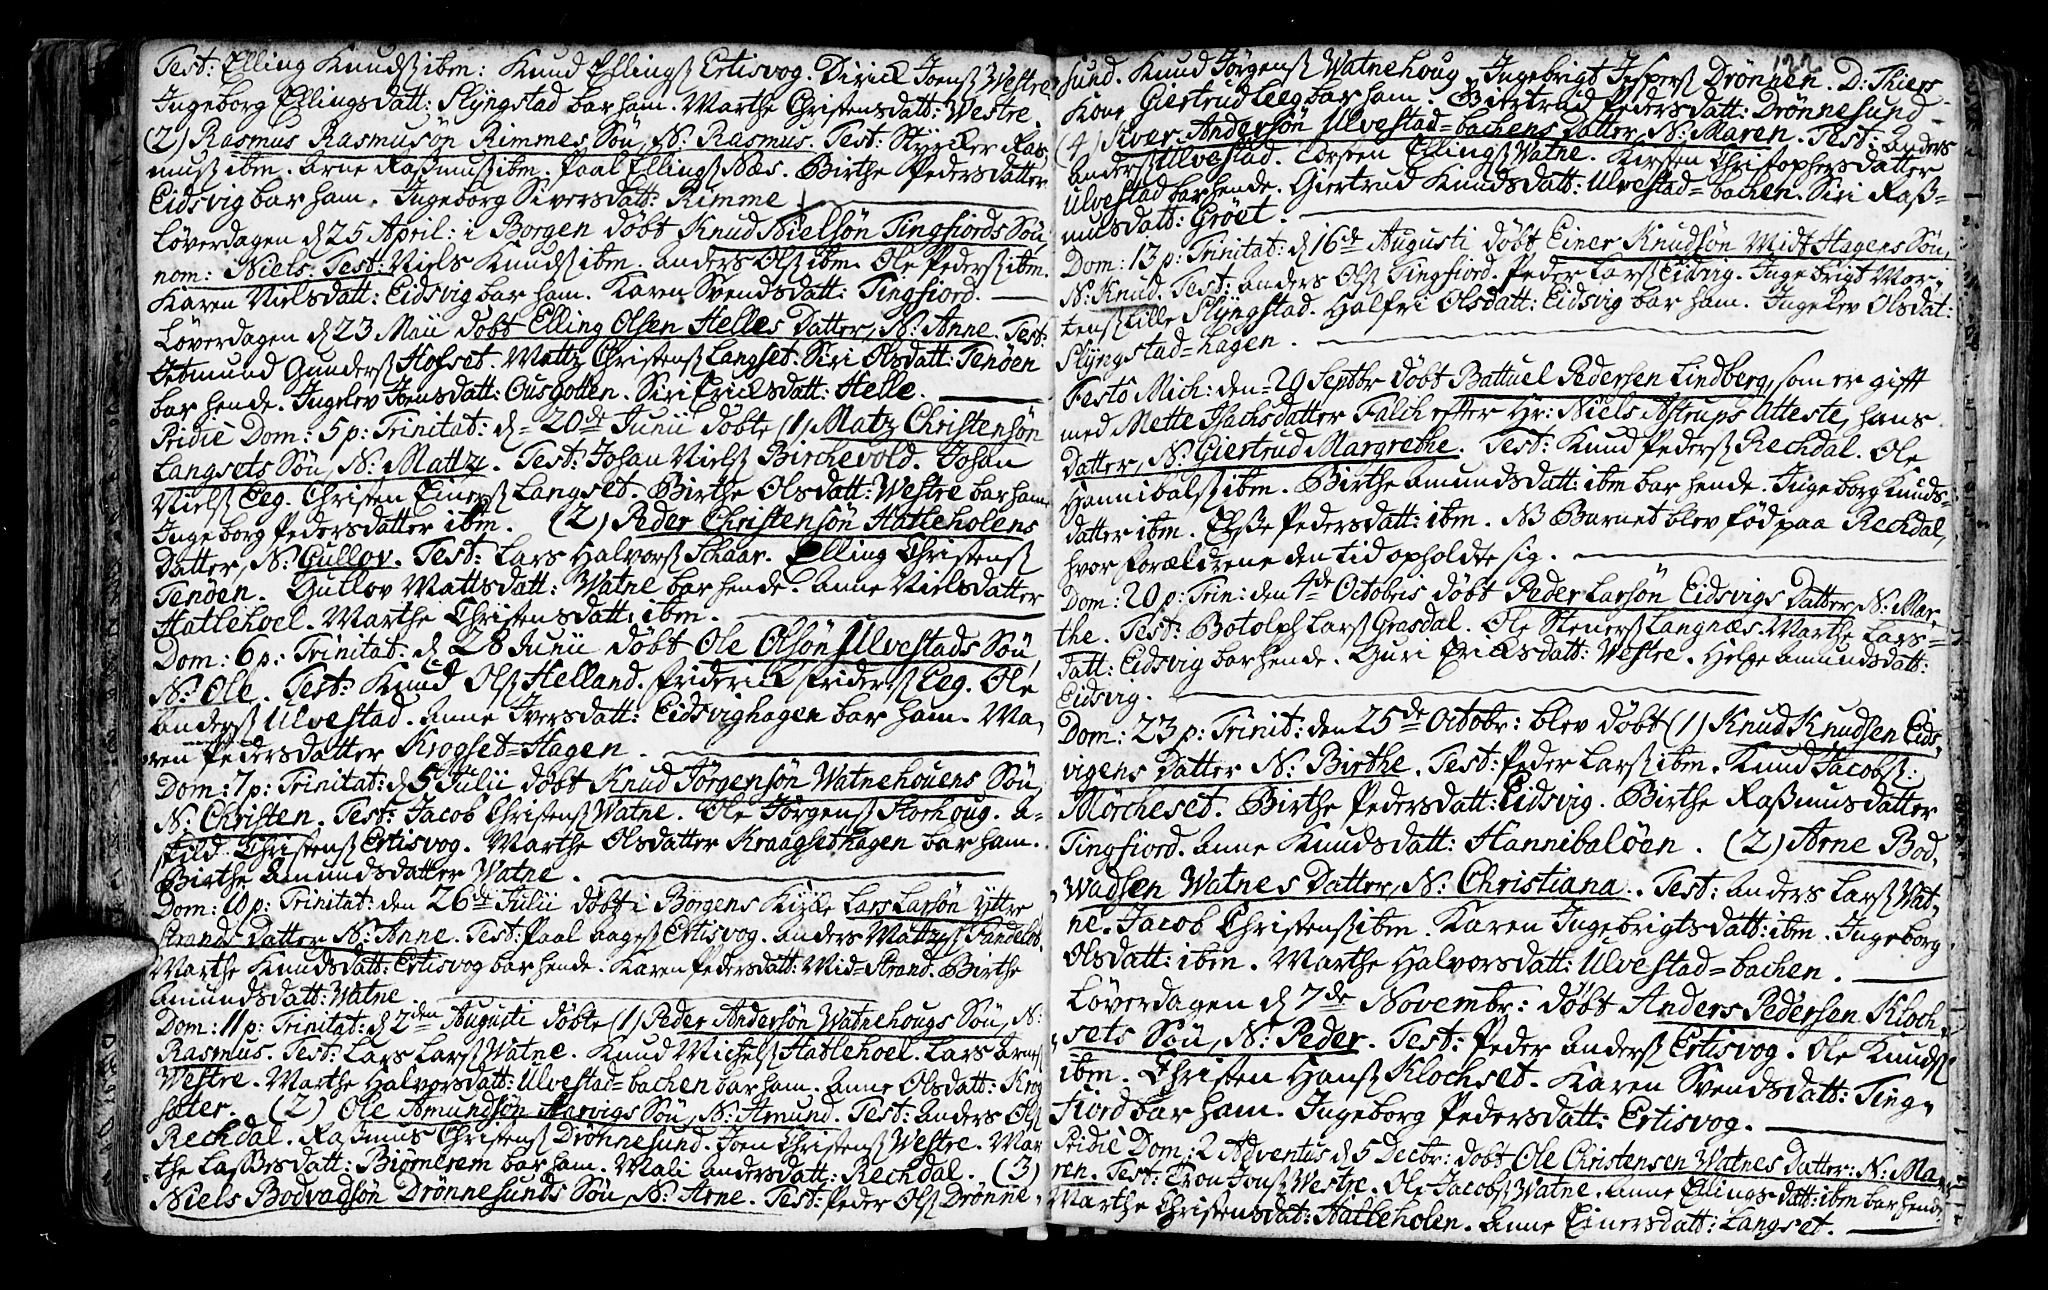 Test: Elling Knudsß ibm: Knud Ellingsß Ertisvog. Dirick Joensß Westre.
Ingeborg Ellingsdatt: Slyngstad bar ham. Marthe Christensdatt: Westre.
(2) Rasmus Rasmusøn Rimmes Søn, N: Rasmus. Test: Stycker Ras,
musß ibm. Arne Raßmusß ibm. Paal Ellingsß Næs. Birthe Pedersdatter
Eidsvig bar ham. Ingeborg Siversdatt: Rimme
Løverdagen d 25 April: i Borgen døbt Knud Nielsøn Tingfiords Søn
nom: Niels. Test: Niels Knudsß ibm. Anders Olsß ibm. Ole Pedersß ibm.
Karen Nielsdatt: Eidsvig bar ham. Karen Svendsdatt: Tingfiord.
Løverdagen d 23 Maii døbt Elling Olsen Helles Datter, N: Anne. Test:
Jetmund Gundersß Hofset. Mattz Christensß Langset. Siri Olsdatt: Tenøen
bar hende. Ingelev Joensdatt: Gusgotten. Siri Ericksdatt: Helle.
Pridie Dom: 5 p: Trinitat: d 20de Junii døbte (1) Matz Christensøn
Langsets Søn, N: Mattz. Test: Johan Nielsß Birchevold. Johan
Nielsß Eeg. Christen Einersß Langset. Birthe Olsdatt: Westre bar ham
Ingeborg Pedersdatter ibm. (2) Peder Christensøn Hatleholens
Datter, N: Gullov. Test: Lars Halvorsß Skaar. Elling Christensß
Tenøen. Gutlov Mattsdatt: Watne bar hende. Anne Nielsdatter
Hatlehoel. Marthe Christensdatt: ibm.
Dom: 6 p: Trinitat: d 28 Junii døbt Ole Olsøn Ulvestads Søn,
N: Ole. Test: Knud Olsß Helland. Friderick Fridersß Eeg. Ole
Andersß Ulvestad. Anne Iversdatt: Eidsvighagen bar ham. Ma,
ren Pedersdatter Krogset=Hagen.
Dom: 7 p: Trinitat: d 5 Julii døbt Knud Jørgensøn Watnehouens Søn,
N: Christen. Test: Jacob Christensß Watne. Ole Jørgensß Storhoug. A=
skild Christensß Ertisvog. Marthe Olsdatter Kraagsethagen bar ham.
Birthe Amundsdatter Watne.
Dom: 10 p: Trinitat: den 26de Julii døbt i Borgens Kirke Lars Larsøn Yttre
Strands Datter N: Anne. Test: Paal Aagesß Ertisvog. Anders Mattzß
Marthe Knudsdatt: Ertisvog bar hende. Karen Pedersdatt: Mid=Strand. Birthe
Amundsdatt: Watne.
Dom: 11 p: Trinitat: d 2den Augusti døbte (1) Peder Andersøn Watnehougs Søn, N:
Rasmus. Test: Lars Larsß Watne. Knud Michelsß Hatlehoel. Lars Arnesß
Westre. Marthe Halvorsdatt: Ulvestad=bachen bar ham. Anne Olsdatt: Krog
sæter. (2) Ole Amundsøn Harvigs Søn, N: Amund. Test: Anders Olsß
Rechdal. Raßmus Christensß Drønnesund. Joen Christensß Westre. Mar
the Laßesdatt: Biørnerem bar ham. Mali Andersdatt: Rechdal. (3)
Niels Bodvadsøn Drønnesunds Søn, N: Arne. Test: Peder Olsß Drønne,
122
sund. Knud Jørgensß Watnehoug. Ingebrigt Jespersß Drønnen. D: Thiers
Kone Giertrud Leeg bar ham. Giertrud Pedersdatt: Drønnesund
(4) Siver Andersøn Ulvestad=bachens Datter, N: Maren. Test: Anders
Andersß Ulvestad. Torsten Ellingsß Watne. Kirsten Christophersdatter
Ulvestad bar hende. Giertrud Knudsdatt: Ulvestad=bachen. Siri Raß=
musdatt: Grøet.
Dom: 13 p: Trinitat: d 16de Augusti døbt Einer Knudsøn Midt Hagens Søn,
N: Knud. Test: Anders Olsß Tingfiord. Peder Larsß Eidvig. Ingebrigt Mor,
tensß Lille Slyngstad. Halfri Olsdatt: Eidsvig bar ham. Ingelev Olsdat:
Slyngstad=hagen.
Festo Mich: den 29 Septbr døbt Battuel Pedersen Lindberg, som er gifft
med Mette Isachsdatter Falch efter Hr: Niels Astrups Atteste, hans
Datter, N: Giertrud Margrethe. Test: Knud Pedersß Rechdal. Ole
Hannibalsß ibm. Birthe Amundsdatt: ibm bar hende. Ingeborg Knuds=
datter ibm. Elße Pedersdatt: ibm. NB Barnet blev fød paa Rechdal,
hvor Forældrene den tid opholdte sig.
Dom: 20 p: Trin: den 4de Octobris døbt Peder Larsøn Eidsvigs Datter, N: Mar,
the. Test: Botolph Larsß Grasdal. Ole Stenersß Langnæs. Marthe Lars=
datt: Eidsvig bar hende. Guri Ericksdatt: Westre. Helge Amundsdatt:
Eidsvig.
Dom: 23 p: Trinit: den 25de Octobr: blev døbt (1) Knud Knudsen Eids,
vigens Datter N: Birthe. Test: Peder Larsß ibm. Knud Jacobsß:
Mørcheset. Birthe Pedersdatt: Eidsvig. Birthe Raßmusdatter
Tingfiord. Anne Knudsdatt: Hannibaløen. (2) Arne Bod,
wadsen Watnes Datter, N: Christiana. Test: Anders Larsß Wat,
ne. Jacob Christensß ibm. Karen Ingebrigtsdatt: ibm. Ingeborg
Olsdatt: ibm. Marthe Halvorsdatt: Ulvestad=bachen.
Løverdagen d 7de Novembr: døbt Anders Pedersen Kloch,
sets Søn, N: Peder. Test: Peder Andersß Ertisvog. Ole Knudsß
ibm. Christen Hansß Klochset. Karen Svendsdatt: Ting,
fiord bar ham. Ingeborg Pedersdatt: Ertisvog.
Pridie Dom: 2 Adventus d 5 Decbr: døbt Ole Christensen Watnes Datter: N: Ma,
ren. Test: Tron Jonsß Westre. Ole Jacobsß Watne. Anne Ellingsdatt: ibm bar hende
Marthe Christensdat: Hatleholen. Anne Einersdatt: Langset.